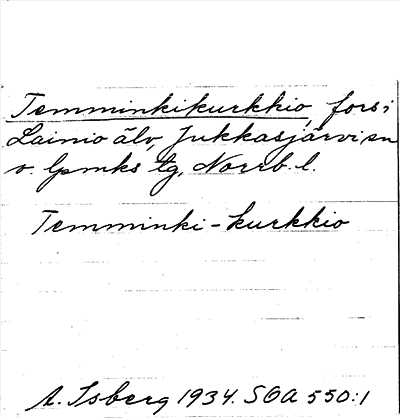 Temminkikurkkio, fors i
Lainio älv, Jukkasjärvi sn
o. lpmks tg, Norrb. l.
Temminki-kurkkio
A. Isberg 1934. SOA 550:1